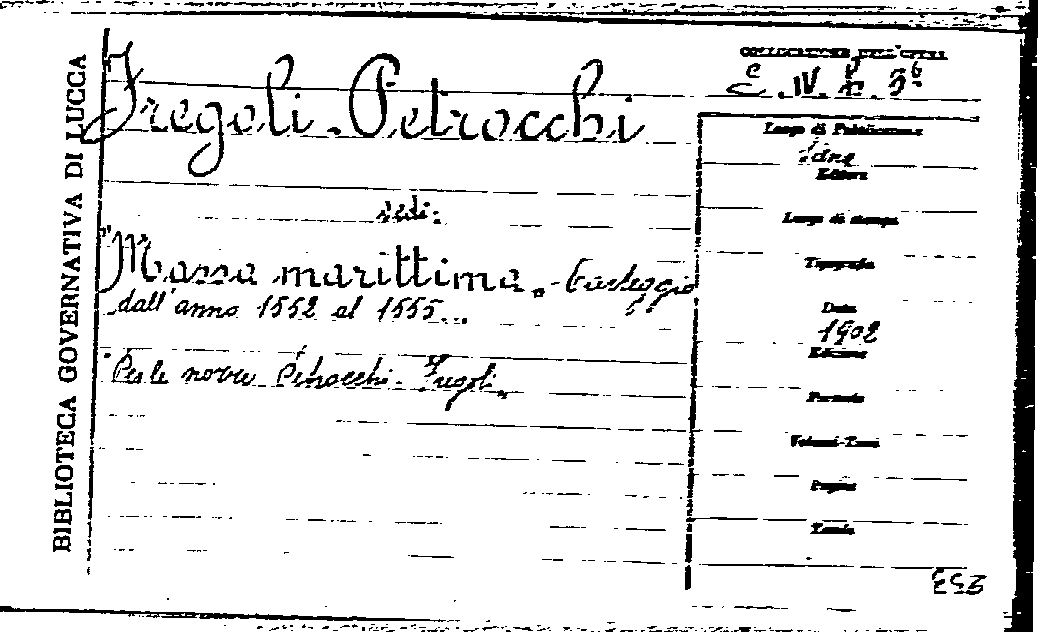 BIBLIOTECA GOVERNATIVA DI LUCCA
Fregoli-Petrocchi
vedi:
"Massa marittima" - Carteggio
dall'anno 1552 al 1555...
"Per le nozze Petrocchi-Fregoli"
COLLOCAZIONE DELL'OPERA
Luogo di Pubblicazione
Editore
Luogo di stampa
Tipografia
Data
1902
Edizione
Formato
Volumi-Tomi
Pagine
Tavole